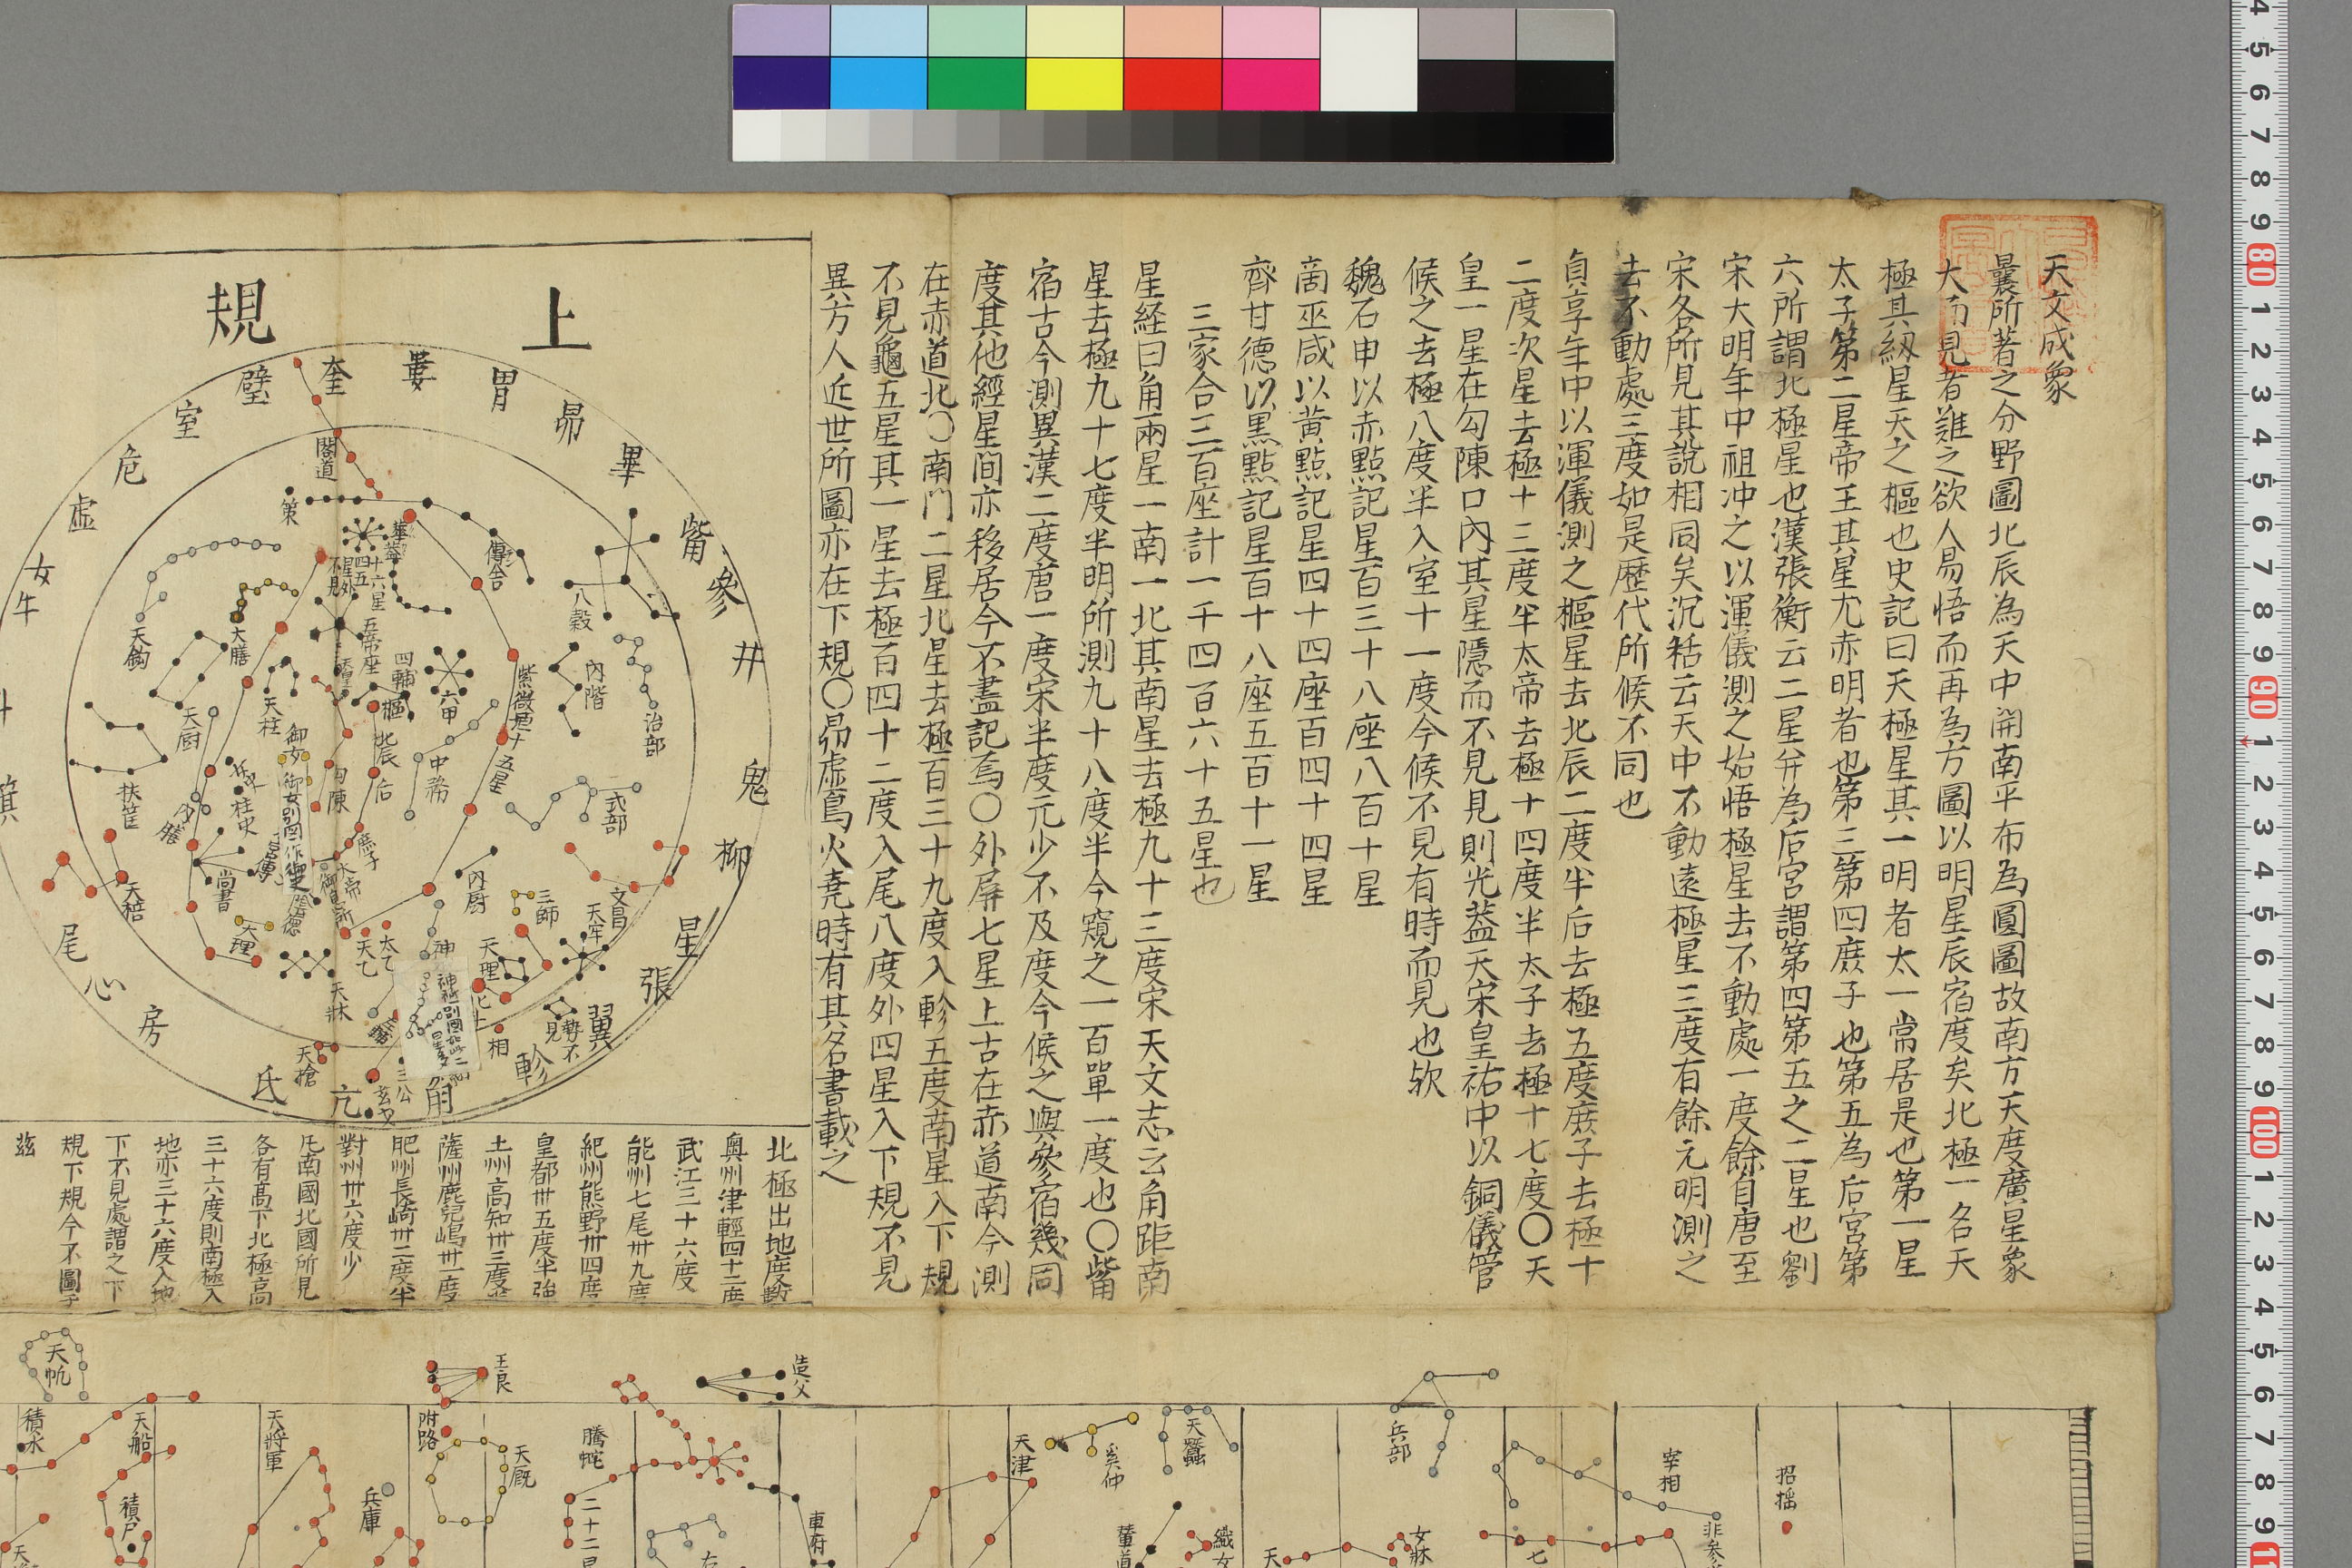 天文成象
曩所著之分野圖北辰為天中開南平布為圓圖故南方天度廣星象
大而見者難之欲人易悟而再為方圖以明星辰宿度矣北極一名天
極其紐星天之樞也史記曰天極星其一明者太一常居是也第一星
太子第二星帝王其星尤赤明者也第三第四庶子也第五為后宮第
六所謂北極星也漢張衡云二星并為后宮謂第四第五之二星也劉
宋大明年中祖冲之以渾儀測之始悟極星去不動處一度餘自唐至
宋各所見其說相同矣沉括云天中不動遠極星三度有餘元明測之
去不動處三度如是歴代所候不同也
貞享年中以渾儀測之樞星去北辰二度半后去極五度庶子去極十
二度次星去極十三度半太帝去極十四度半太子去極十七度〇天
皇一星在勾陳口內其星隱而不見見則光蓋天宋皇祐中以銅儀管
候之去極八度半入室十一度今候不見有時而見也欤
魏石申以赤點記星百三十八座八百十星
啇巫咸以黄點記星四十四座百四十四星
齊甘德以黒點記星百十八座五百十一星
三家合三百座計一千四百六十五星也
星経曰角兩星一南一北其南星去極九十三度宋天文志云角距南
星去極九十七度半明所測九十八度半今窺之一百單一度也〇觜
宿古今測異漢二度唐一度宋半度元少不及度今候之與參宿幾同
度其他經星間亦移居今不盡記焉〇外屏七星上古在赤道南今測
在赤道北〇南門二星北星去極百三十九度入軫五度南星入下規
不見龜五星其一星去極百四十二度入尾八度外四星入下規不見
異方人近世所圖亦在下規〇昴虛鳥火堯時有其名書載之
上規
奎
婁
胃
昴
畢
觜
參
井
鬼
柳
星
張
翼
軫
角
亢
氐
房
心
尾
箕
牛
女
虚
危
室
壁
閣道
策
華蓋
傳舎
八穀
內階
治部
式部
紫微垣十五星
六甲
四輔
樞
北辰
后
庶子
勾陳
五帝座
天柱
御女
柱史
尚書
大理
天鈎
大膳
天厨
扶筐
天棓
中務
內厨
三師
文昌
天牢
天理
相
三公
太乙
天乙
天牀
天搶
北極出地度數
奧州津輕四十二度
武江三十六度
能州七尾卅九度
紀州熊野卅四度
皇都卅五度半強
土州高知卅三度
薩州鹿兒嶋卅一度
肥州長崎卅二度半
對州卅六度少
凡南國北國所見
各有髙下北極高
三十六度則南極入
地亦三十六度入地
下不見處謂之下
規下規今不圖于
茲
造父
王良
天帆
招搖
宰相
兵部
天蠶
奚仲
天津
騰蛇
天厩
附路
天將軍
天船
積水
積尸
兵庫
車府
女牀
二十二星